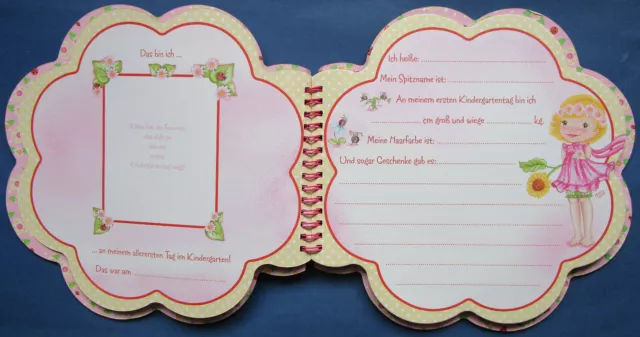 Das bin ich ...
... an meinem allerersten Tag im Kindergarten!
Das war am
Ich heiße:
Mein Spitzname ist:
An meinem ersten Kindergartentag bin ich
cm groß und wiege kg
Meine Haarfarbe ist:
Und sogar Geschenke gab es: